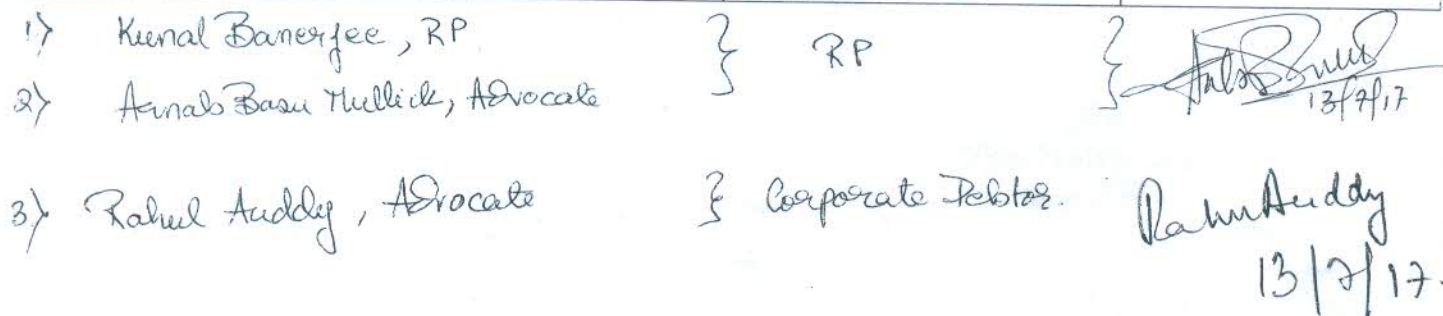 1) Kunal Banerjee, RP } RP }
2) Arnab Basu Mullick, Advocate
13/7/17
3) Rahul Auddy, Advocate } Corporate Debtor. Rahul Auddy
13/7/17.